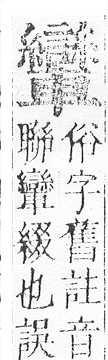 俗字舊註音
聯攣綴也誤